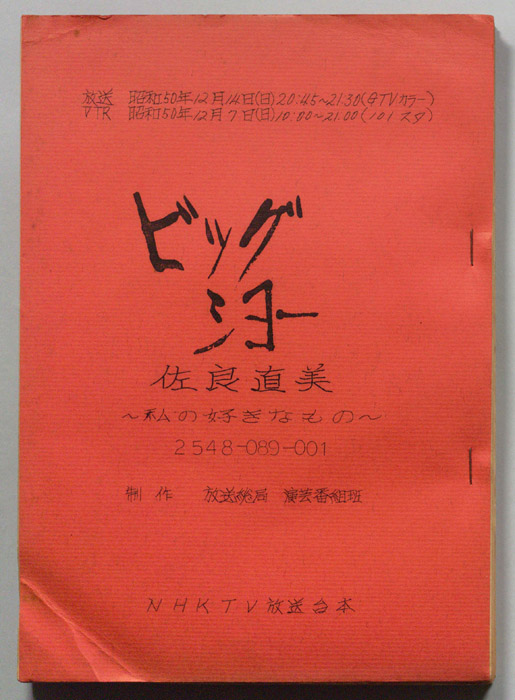 放送 昭和50年12月14日(日)20:45~21:30(GTVカラー)
VTR 昭和50年12月7日(日)10:00~21:00(101スタ)
ビッグ
ショー
佐良直美
~私の好きなもの~
2548-089-001
制作 放送総局 演芸番組班
NHKTV放送台本